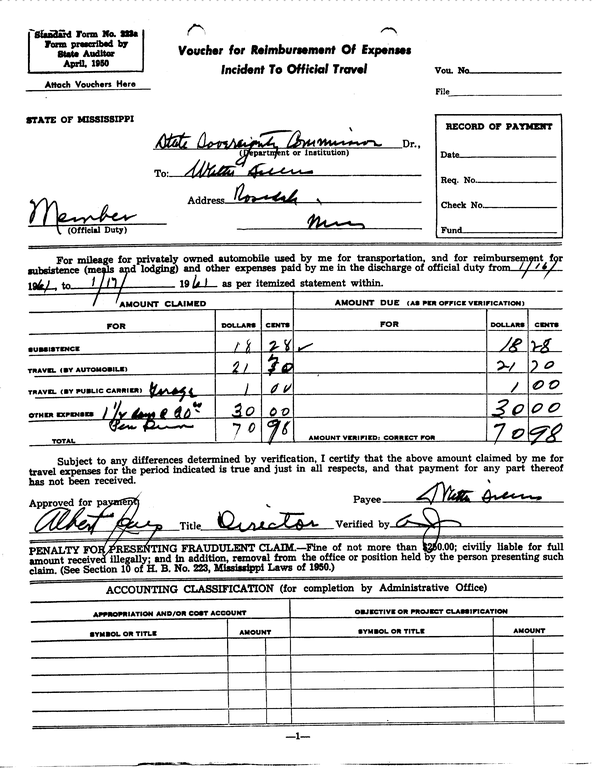 Standard Form No. 223a
Form prescribed by
State Auditor
April, 1950
Attach Vouchers Here
Voucher for Reimbursement Of Expenses
Incident To Official Travel
Vou. No.
File
STATE OF MISSISSIPPI
State Sovereignty Commission Dr.,
(Department or Institution)
To: Walter Sillers
Address Rosedale,
Miss
Member
(Official Duty)
RECORD OF PAYMENT
Date
Req. No.
Check No.
Fund
For mileage for privately owned automobile used by me for transportation, and for reimbursement for
subsistence (meals and lodging) and other expenses paid by me in the discharge of official duty from 1/16/
1961, to 1/17/ 1961 as per itemized statement within.
AMOUNT CLAIMED AMOUNT DUE (AS PER OFFICE VERIFICATION)
FOR DOLLARS CENTS FOR DOLLARS CENTS
SUBSISTENCE 18 28 ✓ 18 28
TRAVEL (BY AUTOMOBILE) 21 70 21 70
TRAVEL (BY PUBLIC CARRIER) Garage 1 00 1 00
OTHER EXPENSES 1 1/2 days @ 20.00 30 00 30 00
Per Diem
TOTAL 70 98 AMOUNT VERIFIED: CORRECT FOR 70 98
Subject to any differences determined by verification, I certify that the above amount claimed by me for
travel expenses for the period indicated is true and just in all respects, and that payment for any part thereof
has not been received.
Payee Walter Sillers
Approved for payment
Albert Jones Title Director Verified by
PENALTY FOR PRESENTING FRAUDULENT CLAIM.—Fine of not more than $250.00; civilly liable for full
amount received illegally; and in addition, removal from the office or position held by the person presenting such
claim. (See Section 10 of H. B. No. 223, Mississippi Laws of 1950.)
ACCOUNTING CLASSIFICATION (for completion by Administrative Office)
APPROPRIATION AND/OR COST ACCOUNT OBJECTIVE OR PROJECT CLASSIFICATION
SYMBOL OR TITLE AMOUNT SYMBOL OR TITLE AMOUNT
—1—